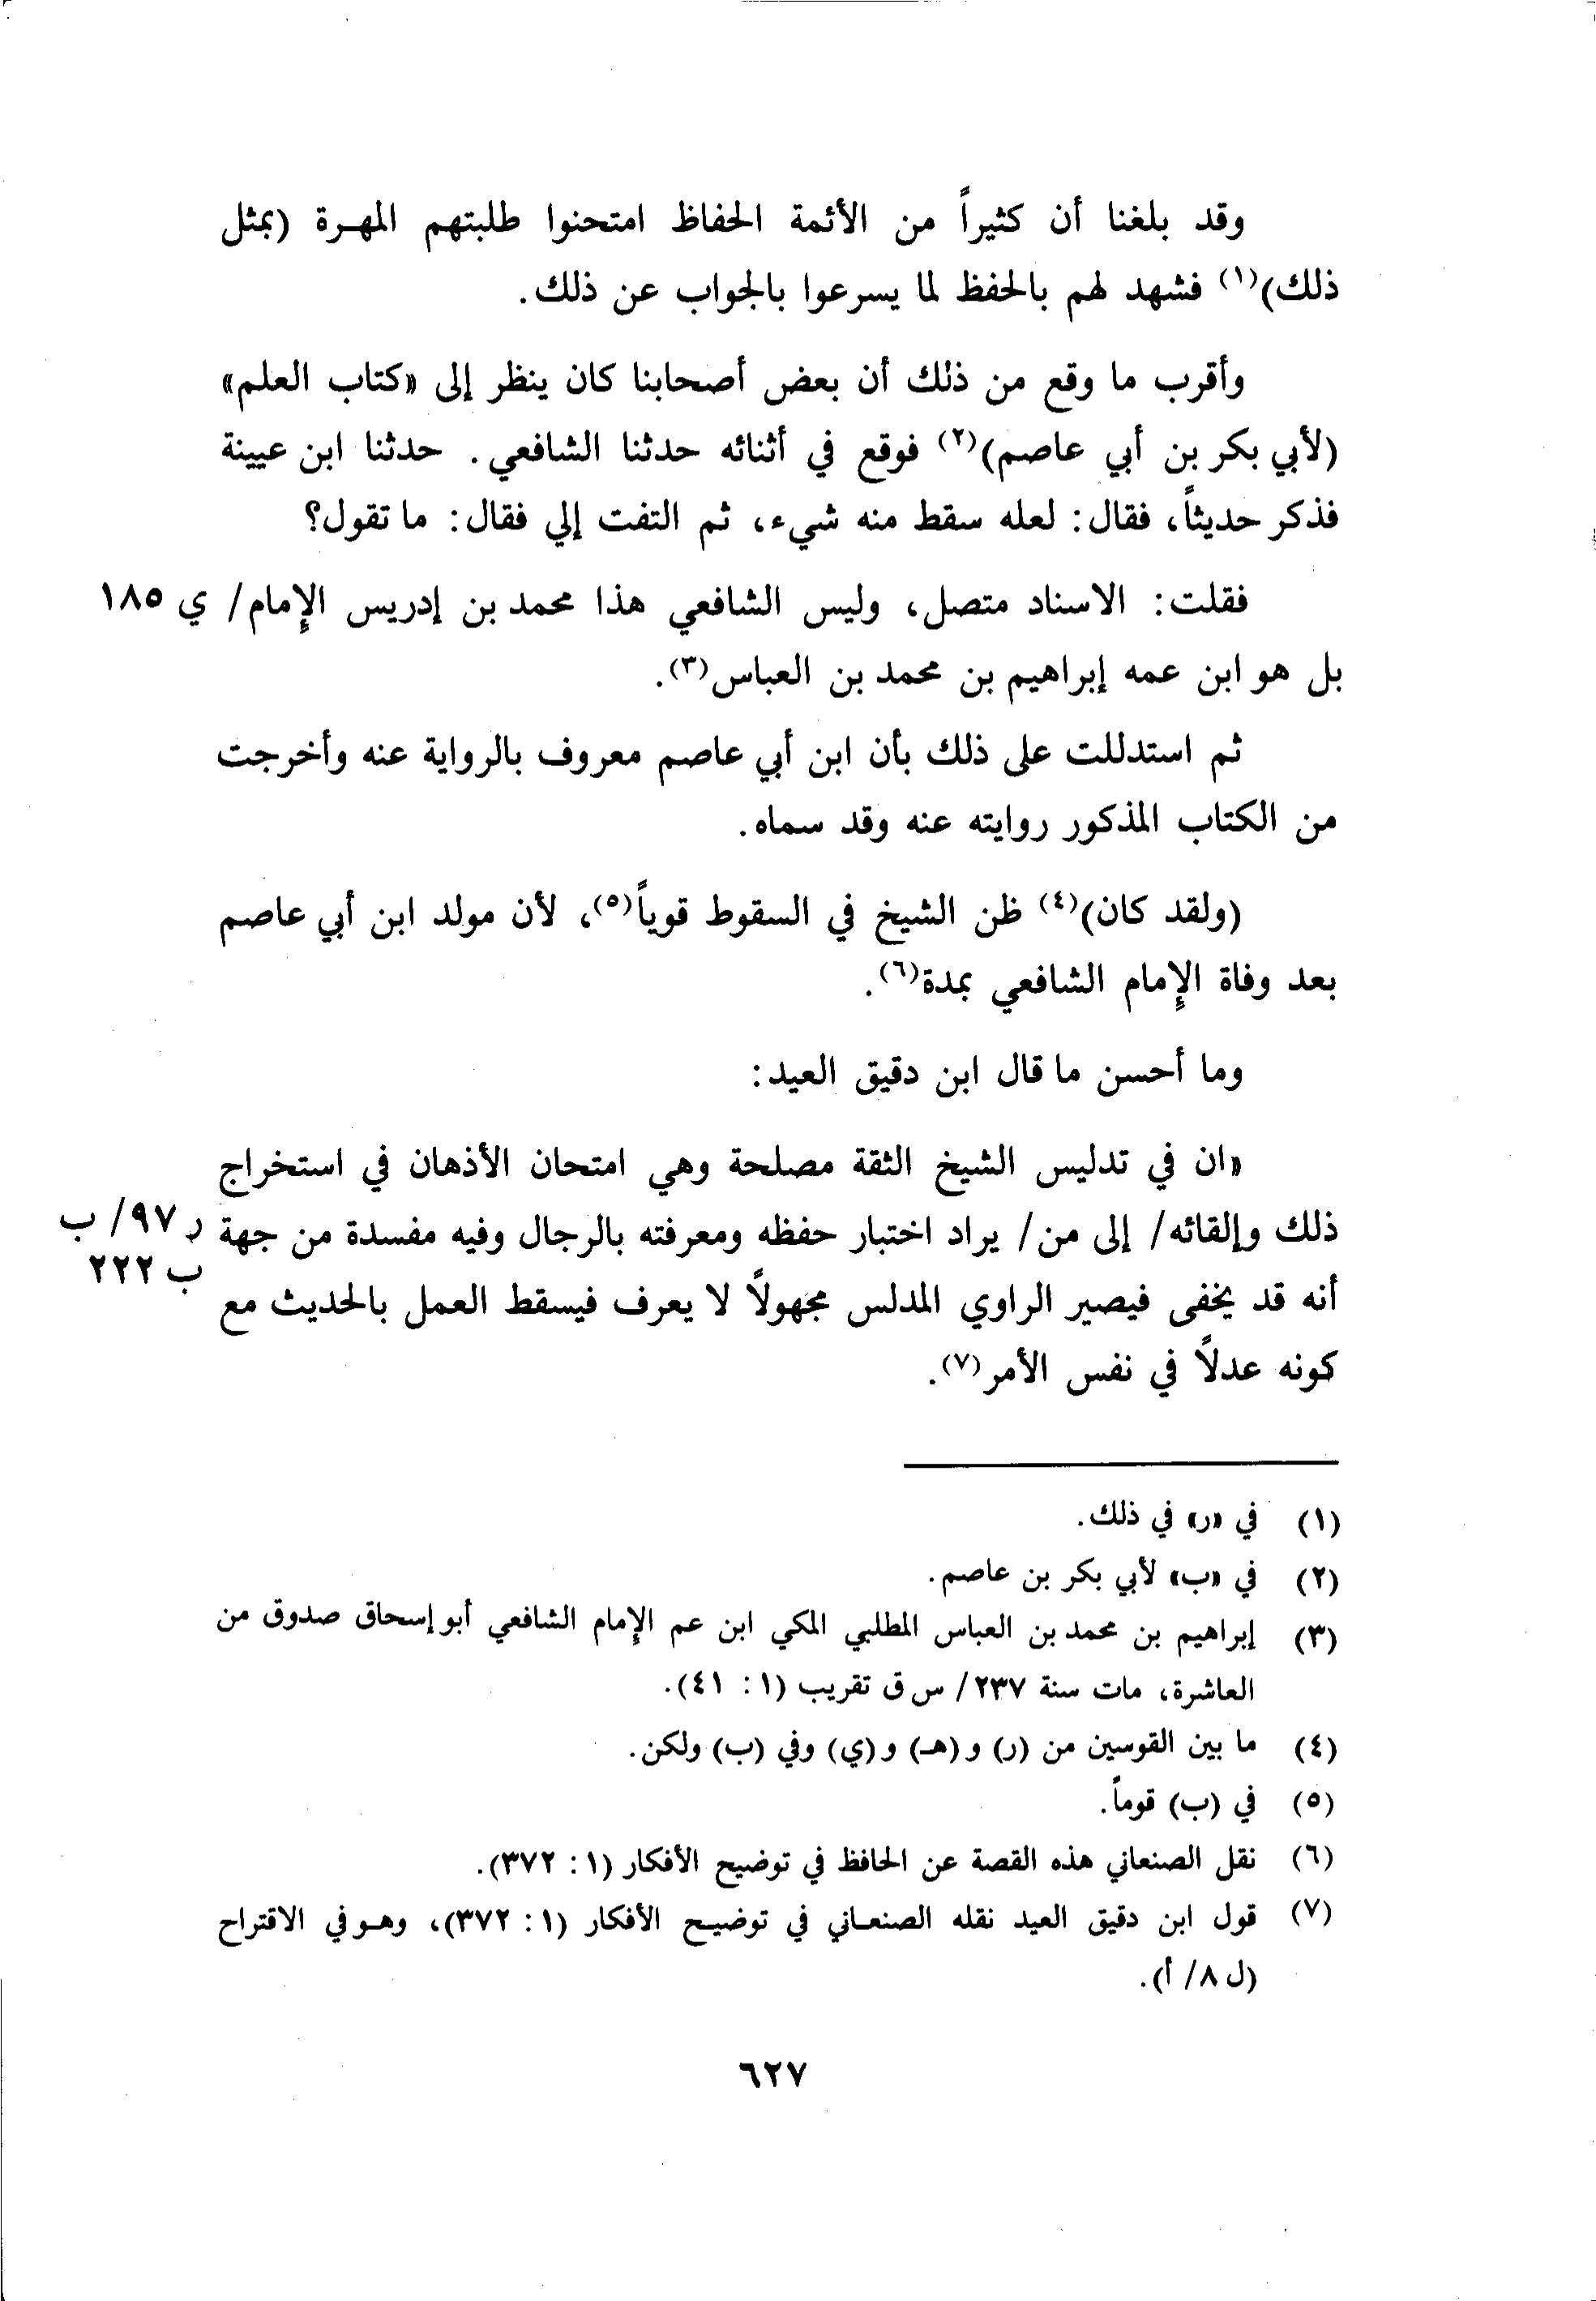 وقد بلغنا أن كثيراً من الأئمة الحفاظ امتحنوا طلبتهم المهرة (بمثل
ذلك)(١) فشهد لهم بالحفظ لما يسرعوا بالجواب عن ذلك.
وأقرب ما وقع من ذلك أن بعض أصحابنا كان ينظر إلى «كتاب العلم»
(لأبي بكر بن أبي عاصم)(٢) فوقع في أثنائه حدثنا الشافعي. حدثنا ابن عيينة
فذكر حديثاً، فقال: لعله سقط منه شيء، ثم التفت إلي فقال: ما تقول؟
فقلت: الاسناد متصل، وليس الشافعي هذا محمد بن إدريس الإمام/ ي ١٨٥
بل هو ابن عمه إبراهيم بن محمد بن العباس(٣).
ثم استدللت على ذلك بأن ابن أبي عاصم معروف بالرواية عنه وأخرجت
من الكتاب المذكور روايته عنه وقد سماه.
(ولقد كان)(٤) ظن الشيخ في السقوط قوياً(٥)، لأن مولد ابن أبي عاصم
بعد وفاة الإمام الشافعي بمدة(٦).
وما أحسن ما قال ابن دقيق العيد:
«ان في تدليس الشيخ الثقة مصلحة وهي امتحان الأذهان في استخراج
ذلك وإلقائه/ إلى من/ يراد اختبار حفظه ومعرفته بالرجال وفيه مفسدة من جهة ر ٩٧/ ب
ب ٢٢٢
أنه قد يخفى فيصير الراوي المدلس مجهولاً لا يعرف فيسقط العمل بالحديث مع
كونه عدلاً في نفس الأمر(٧).
(١) في «ر» في ذلك.
(٢) في «ب» لأبي بكر بن عاصم.
(٣) إبراهيم بن محمد بن العباس المطلبي المكي ابن عم الإمام الشافعي أبو إسحاق صدوق من
العاشرة، مات سنة ٢٣٧/ س ق تقريب (١: ٤١).
(٤) ما بين القوسين من (ر) و (هـ) و (ي) وفي (ب) ولكن.
(٥) في (ب) قوماً.
(٦) نقل الصنعاني هذه القصة عن الحافظ في توضيح الأفكار (١: ٣٧٢).
(٧) قول ابن دقيق العيد نقله الصنعاني في توضيح الأفكار (١: ٣٧٢)، وهو في الاقتراح
(ل ٨/ أ).
٦٢٧